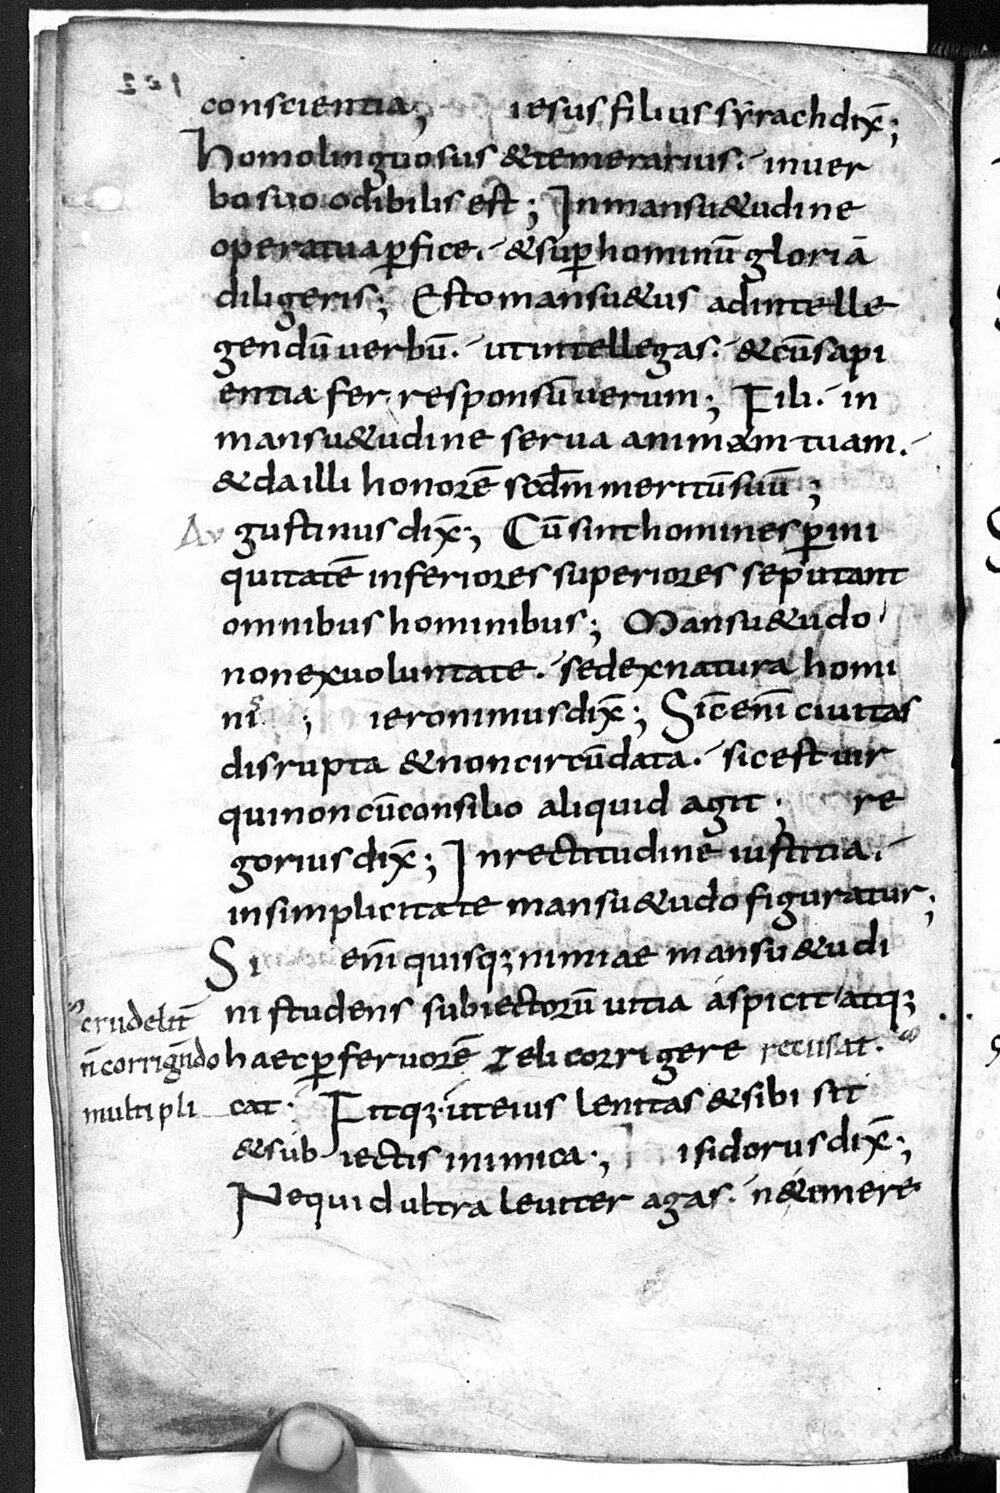 conscientia; iesus filius syrach dix̄;
Homo linguosus & temerarius. in uer
bo suo odibilis est; In mansu&udine
opera tua ꝑfice. & suꝑ hominū gloriā
diligeris; Esto mansu&us ad intelle
gendū uerbū. ut intellegas. & cū sapi
entia fer responsū uerum; Fili. in
mansu&udine serua animam tuam.
& da illi honorē scdm̄ meritū suū;
Au gustinus dix̄; Cū sint homines ꝑ ini
quitatē inferiores superiores se putant
omnibus hominibus; Mansu&udo
non ex uoluntate. sed ex natura homi
ni; ieronimus dix̄; Sic̄ enī ciuitas
disrupta & non circūdata. sic est uir
qui non cū consilio aliquid agit; re
gorius dix̄; In rectitudine iustitia.
in simplicitate mansu&udo figuratur;
Si enī quisqꝫ nimiae mansu&udi
ni studens subiectorū uitia aspicit atqꝫ
crudelit̄
haec ꝑ feruorē zeli corrigere recusat.
n̄ corrign̄do
multipli cat; Fitqꝫ ut eius lenitas & sibi sit
& sub iectis inimica; isidorus dix̄;
Ne quid ultra leuiter agas. ne temere